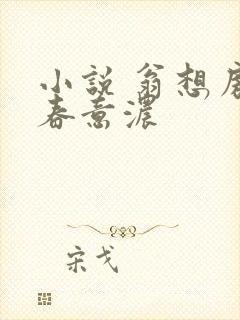 小说 翁想
春意濃
宋戈